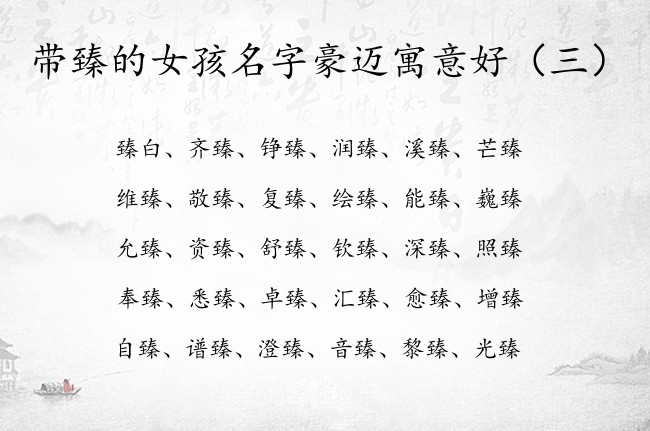 带臻的女孩名字豪迈寓意好（三）
臻白、齐臻、铮臻、润臻、溪臻、芒臻
维臻、敬臻、复臻、绘臻、能臻、巍臻
允臻、资臻、舒臻、钦臻、深臻、照臻
奉臻、悉臻、卓臻、汇臻、愈臻、增臻
自臻、谱臻、澄臻、音臻、黎臻、光臻